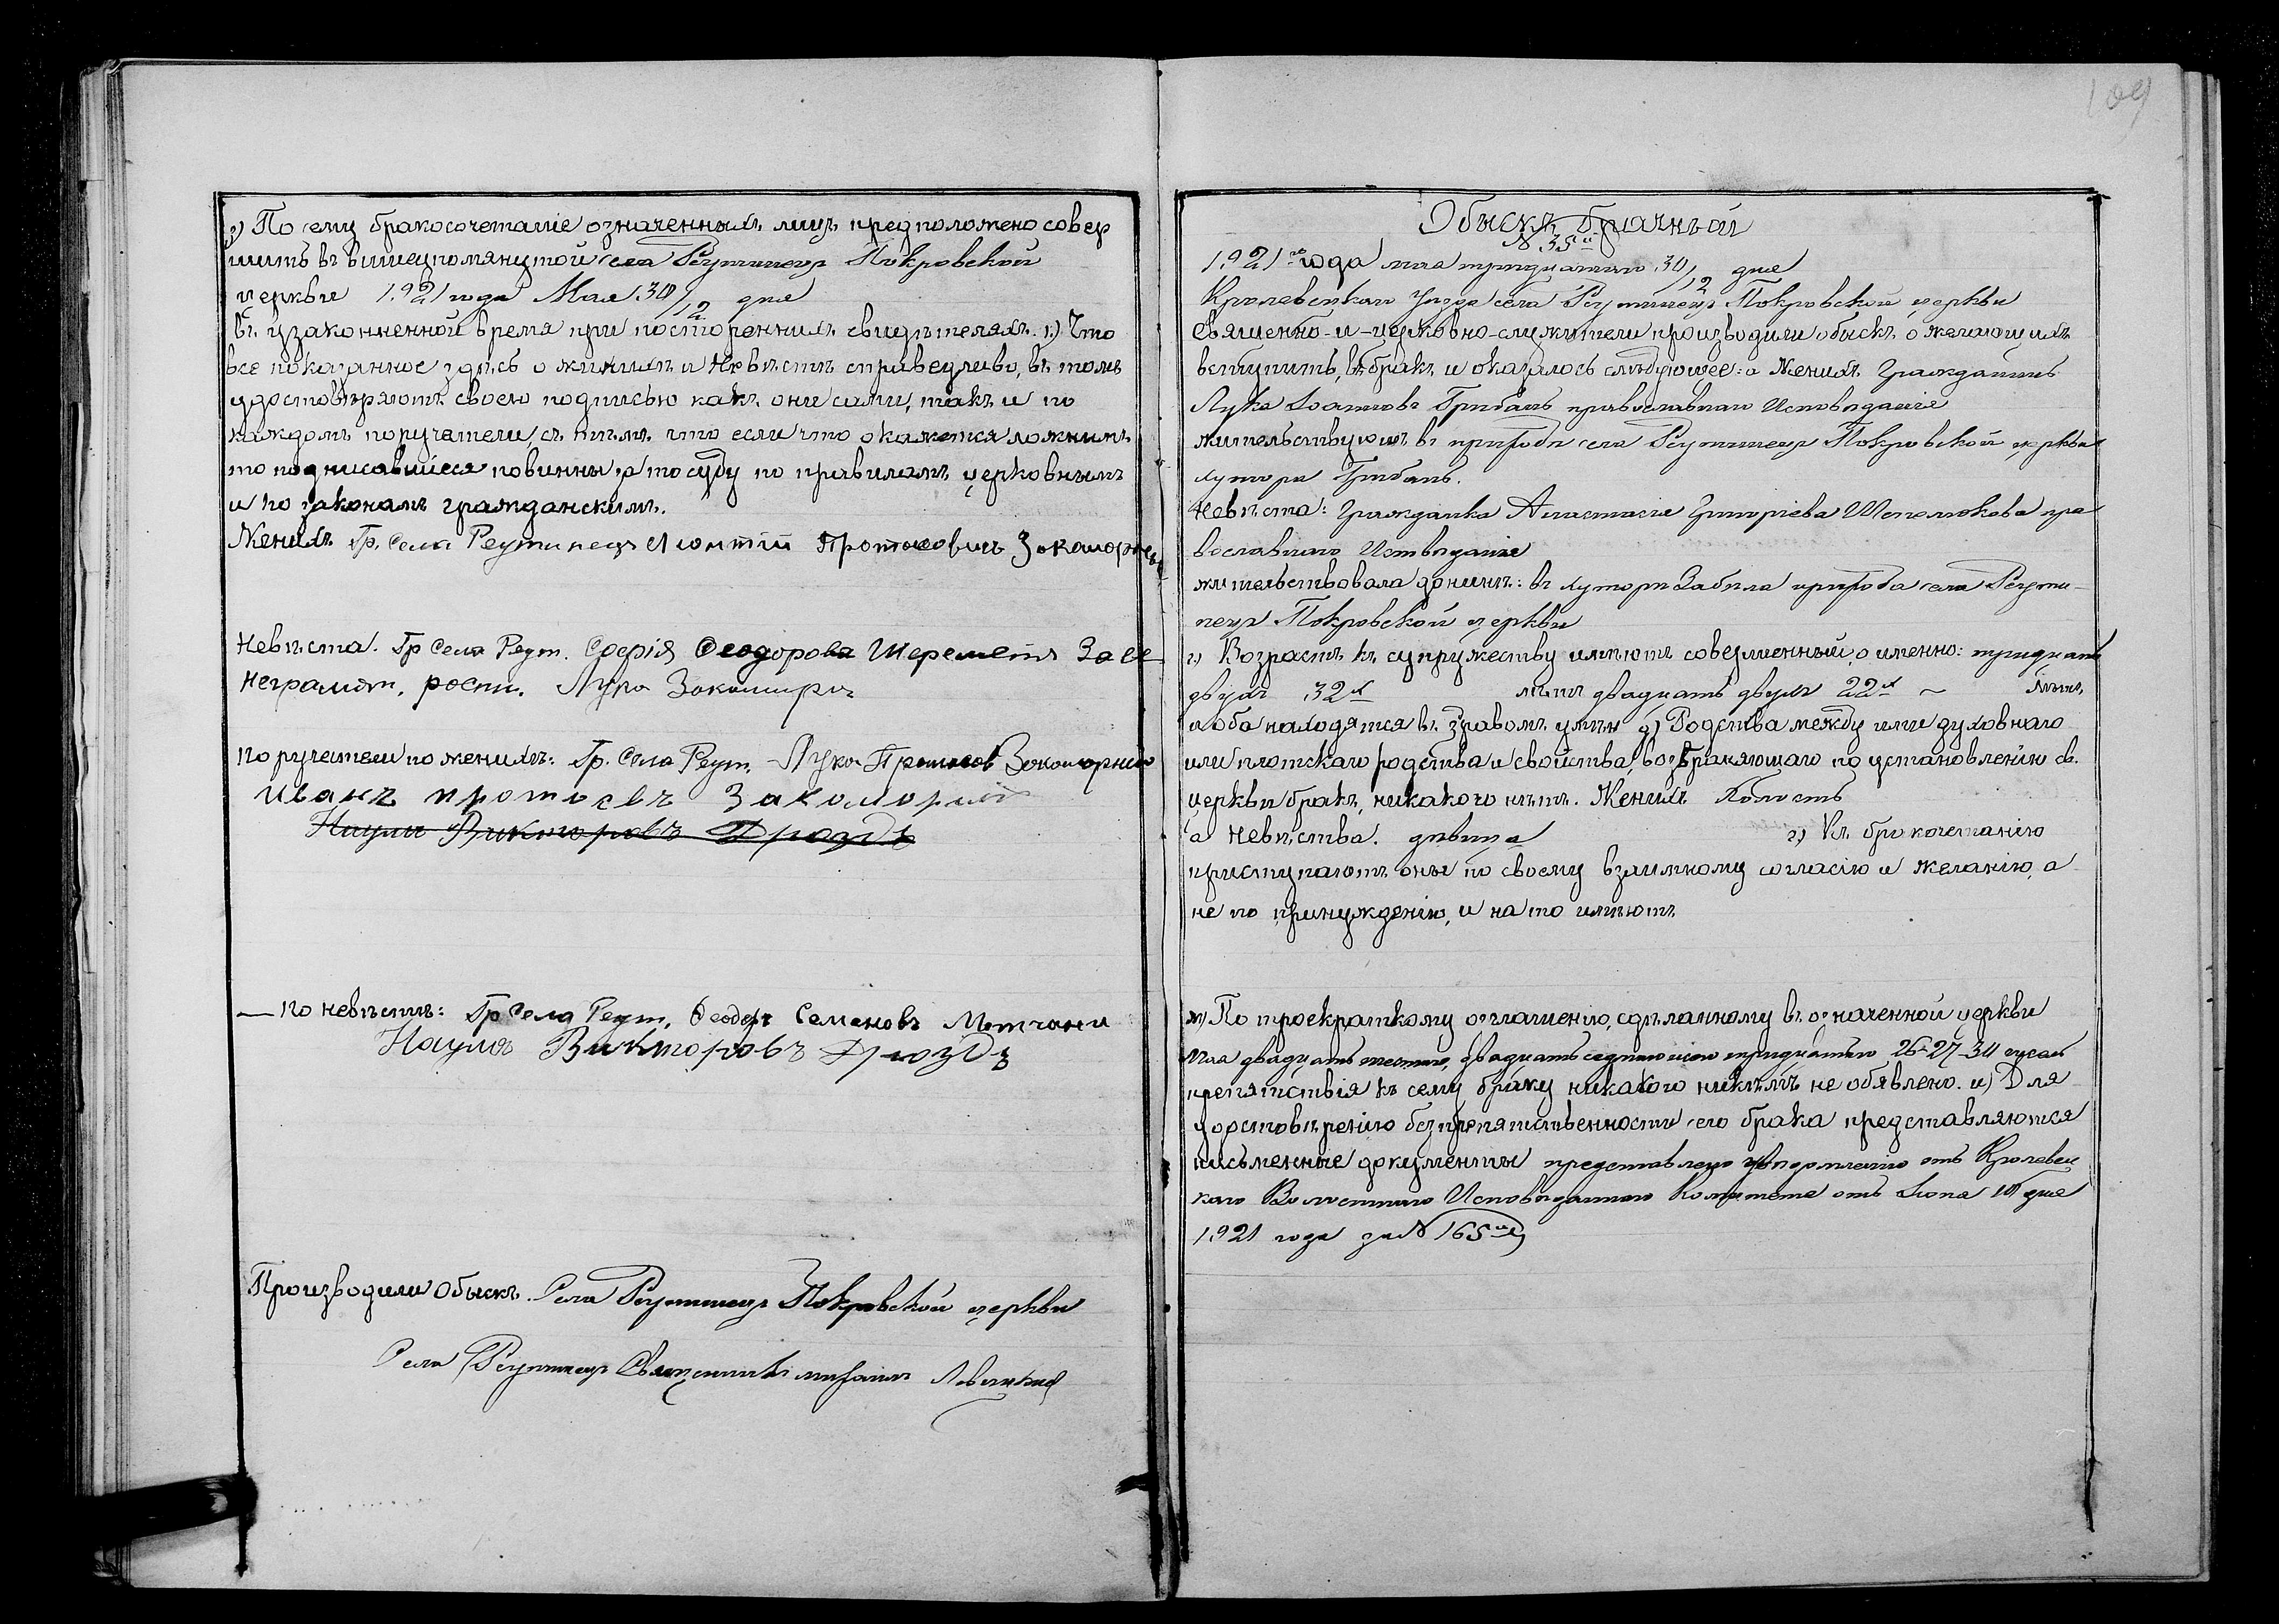 з) По сему бракосочетаніе означенныхъ лицъ предположено совер
шить въ вышеупомянутой села Реутинецъ Покровской
церкви 1921 года Мая 30/12 дня
въ узаконненной время при посторенних свидѣтеляхъ. i.) Что
все показанное здѣсь о женихѣ и Невѣстѣ справедливо, въ томъ
удостовѣряютъ своею подписью какъ они сами, такъ и по
каждомъ поручатели, съ тѣмъ что если что окажется ложнымъ
то поднисавшіеся повинны за то суду по правиламъ церковнымъ
и по законамъ гражданскимъ.
Женихъ Гр. Села Реутинецъ Леонтій Протасовичъ Закоморный
Невѣста. Гр Села Реут. Софія Феодорова Шереметъ За ее
неграмот. росп. Лука Закоморн
Поручатели по женихѣ: Гр. Села Реут. Лука Протасов Закоморный
Иванъ протасвъ Закоморный
Наумъ Викторовъ Дроздъ
— По невѣстѣ: Гр Села Реут. Феодоръ Семеновъ
Наумъ Викторовъ Дроздъ
Производили Обыскъ. Села Реутинецъ Покровской церкви
Села Реутинецъ Священникъ Михаилъ
109
Обыскъ брачный
№ 35й
1921го года мая тридцатаго 30/12 дня
Кролевецкаго Уезда села Реутинецъ Покровской церкви
Священно-и-церковно-служители производили обыскъ о желающихъ
вступить, въ бракъ и оказалось слѣдующее: а Женихъ Гражданинъ
Лука Іоанновъ Грибанъ православнаго Исповѣданія
жительствуютъ въ приходѣ села Реутинецъ Покровской церкви
хутора Грибанъ.
Невѣста: Гражданка Анастасія Григоріева Шепелюкова пра
вославнаго Исповѣданія
жительствовала донынѣ: въ хуторѣ Забила прихода села Реути-
нецъ Покровской церкви
г) Возрастъ къ супружеству имѣютъ совершенный, о именно: тридцать
двухъ 32х лѣтъ двадцать двухъ 22х ~ лѣтъ
и оба находятся въ здравомъ умѣ д) Родства между ими духовнаго
или плотскаго родства и свойства, возбраняющаго по установленію св.
церкви бракъ, никакого нѣтъ. Женихъ Холостъ
а Невѣства. дѣвица г) Къ бракочетанію
приступаютъ оны по своему взаимному согласію и желанію, а
не по принужденію, и на то имѣютъ
ж) По троекраткому оглашенію, сдѣланному въ означенной церкви
Мая двадцать шестаго, двадцать седьмого и тридцатаго 26-27-30 числа
препятствія къ сему браку никакого никѣмъ не обявлено. и) Для
удостовѣренію безпрепятственности сего брака представляются
письменные документы представлено увѣдомленіе отъ Кролевец
каго Волостнаго Комитета отъ Іюня 10 дня
1921 года за № 165мъ